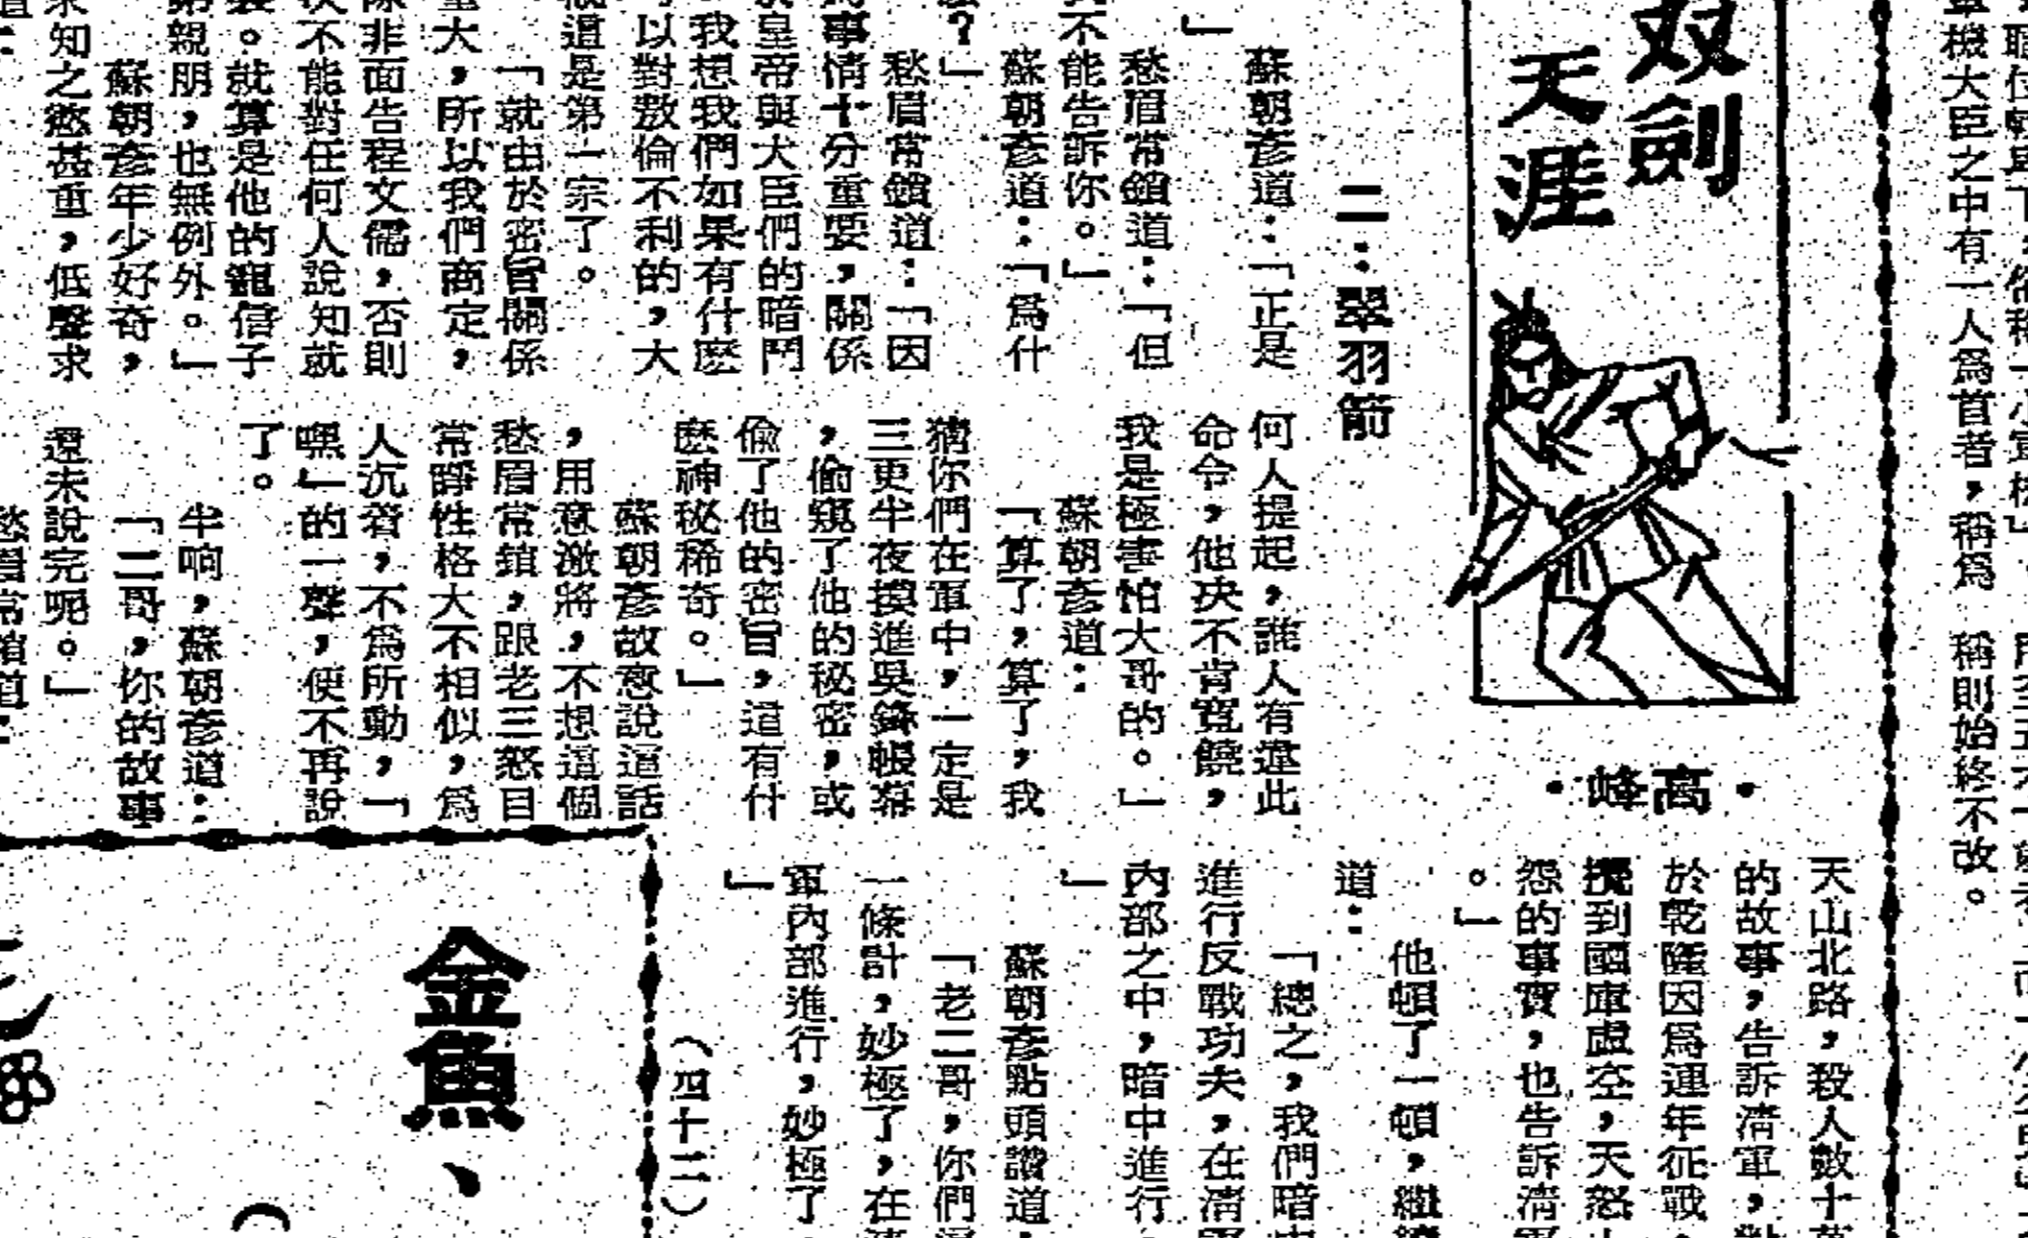 双劍
天涯
·高峰·
二：翠羽箭
蘇朝彥道：「正是
」
愁眉常鎖道：「但
不能告訴你。」
蘇朝彥道：「爲什
麽？」
愁眉常鎖道：「因
事情十分重要，關係
皇帝與大臣們的暗鬥
我想我們如果有什麽
以對敖倫不利的，大
道是第一宗了。
「就由於密旨關係
重大，所以我們商定，
除非面告程文儒，否則
决不能對任何人說知就
。就算是他的寵信子
弟親朋，也無例外。」
蘇朝彥年少好奇，
求知之慾甚重，低聲求
道：
何人提起，誰人有違此
命令，他决不肯寬饒，
我是極害怕大哥的。」
蘇朝彥道：
「算了，算了，我
猜你們在軍中，一定是
三更半夜摸進吳鋒帳幕
，偷窺了他的秘密，或
偸了他的密旨，這有什
麽神秘稀奇。」
蘇朝彥故意說這話
，用意激將，不想這個
愁眉常鎖，跟老三怒目
常睜性格大不相似，爲
人沉着，不爲所動，「
嘿」的一聲，便不再說
了。
半晌，蘇朝彥道：
「二哥，你的故事
還未說完呢。」
愁眉常鎖道：
天山北路，殺人數十萬
的故事，告訴淸軍，對
於乾隆因爲連年征戰，
攪到國庫虛空，天怒人
怨的事實，也告訴淸軍
。」
他頓了一頓，繼續
道：
「總之，我們暗中
進行反戰功夫，在淸軍
內部之中，暗中進行。
」
蘇朝彥點頭讚道：
「老二哥，你們這
一條計，妙極了，在淸
軍內部進行，妙極了。
」
（四十二）
軍機大臣之中有一人爲首者，稱爲
稱則始終不改。
金魚、